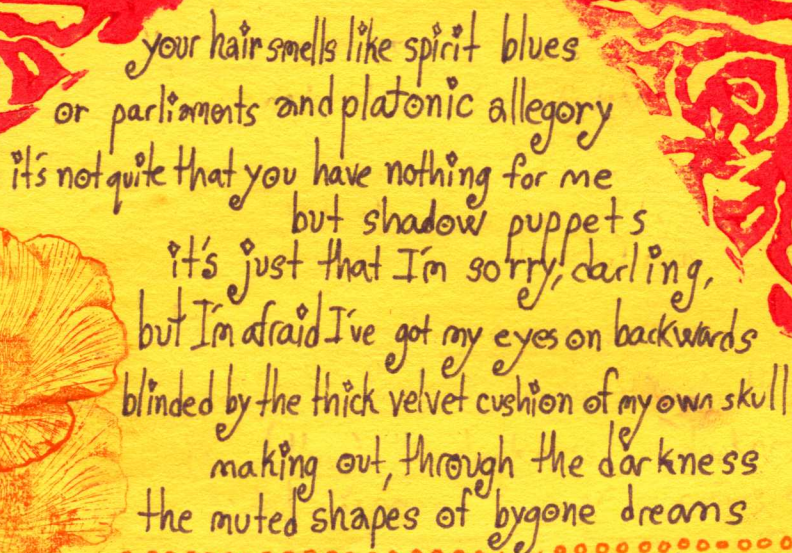 your hair smells like spirit blues
or parliaments and platonic allegory
it's not quite that you have nothing for me
but shadow puppets
it's just that I'm sorry, darling,
but I'm afraid I've got my eyes on backwards
blinded by the thick velvet cushion of my own skull
making out, through the darkness
the muted shapes of bygone dreams